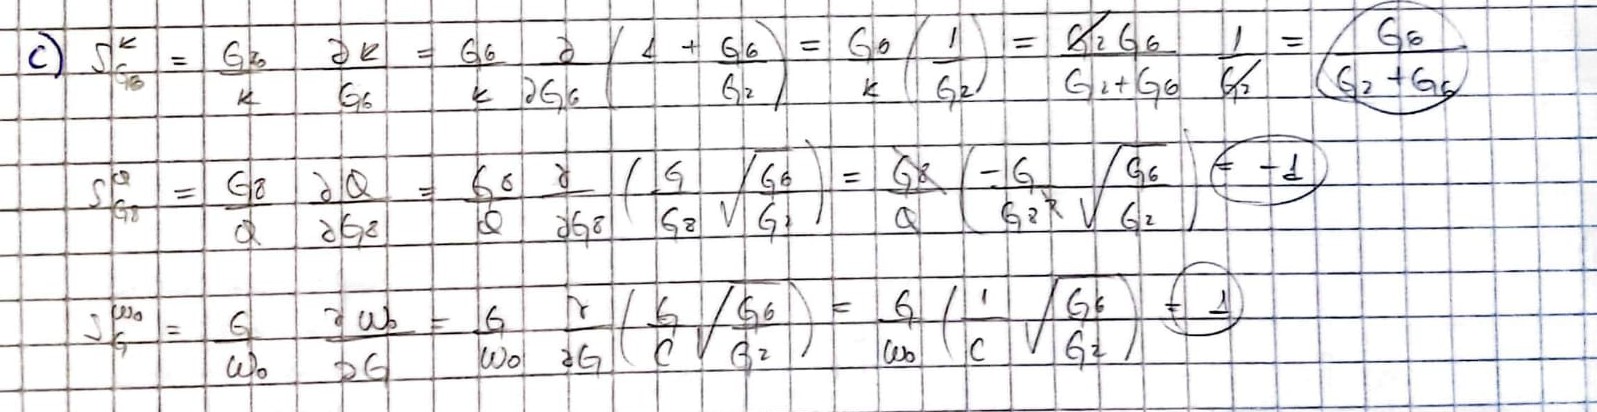 c) S^k_{G6} = G6/k ∂k/G6 = G6/k ∂/∂G6 (1 + G6/G2) = G6/k (1/G2) = G2G6/(G2+G6) 1/G2 = G6/(G2+G6)
S^Q_{G8} = G8/Q ∂Q/∂G8 = G8/Q ∂/∂G8 (G/G8 √(G6/G2)) = G8/Q (-G/G8² √(G6/G2)) = -1
S^{ω0}_G = G/ω0 ∂ω0/∂G = G/ω0 ∂/∂G (G/C √(G6/G2)) = G/ω0 (1/C √(G6/G2)) = 1